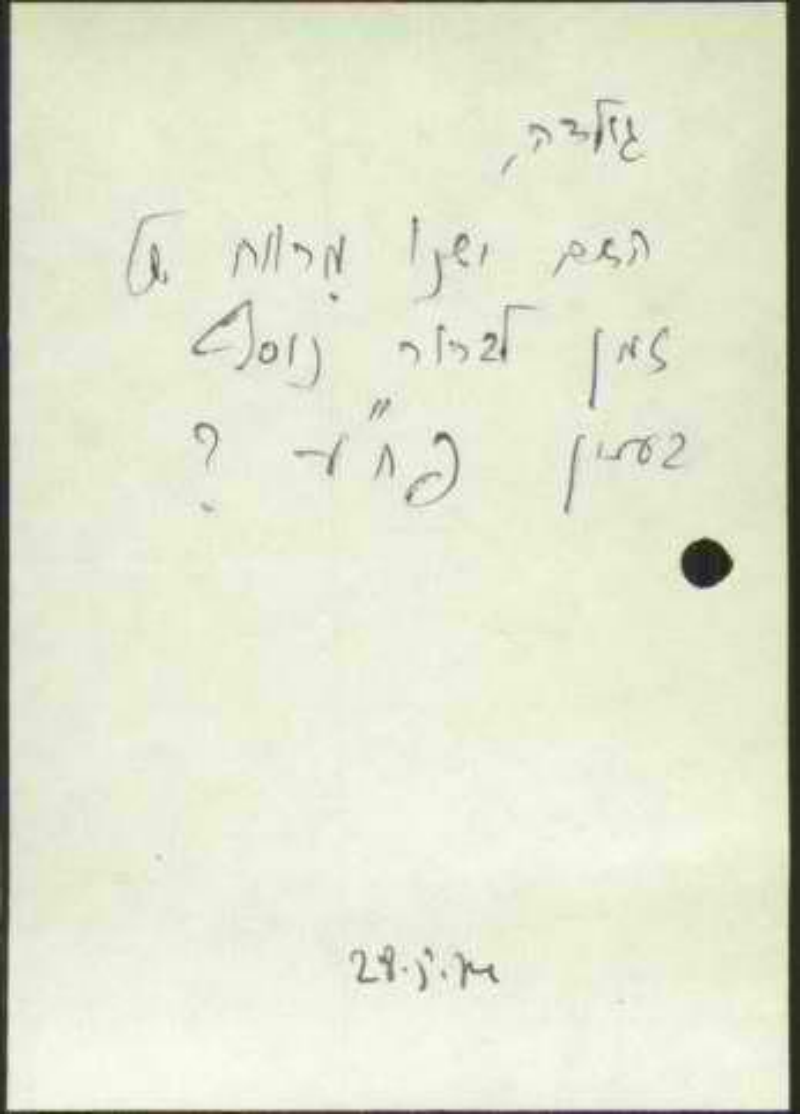 גולדה,
האם ישנו מרווח של
זמן לברור נוסף
בענין פח"ע ?